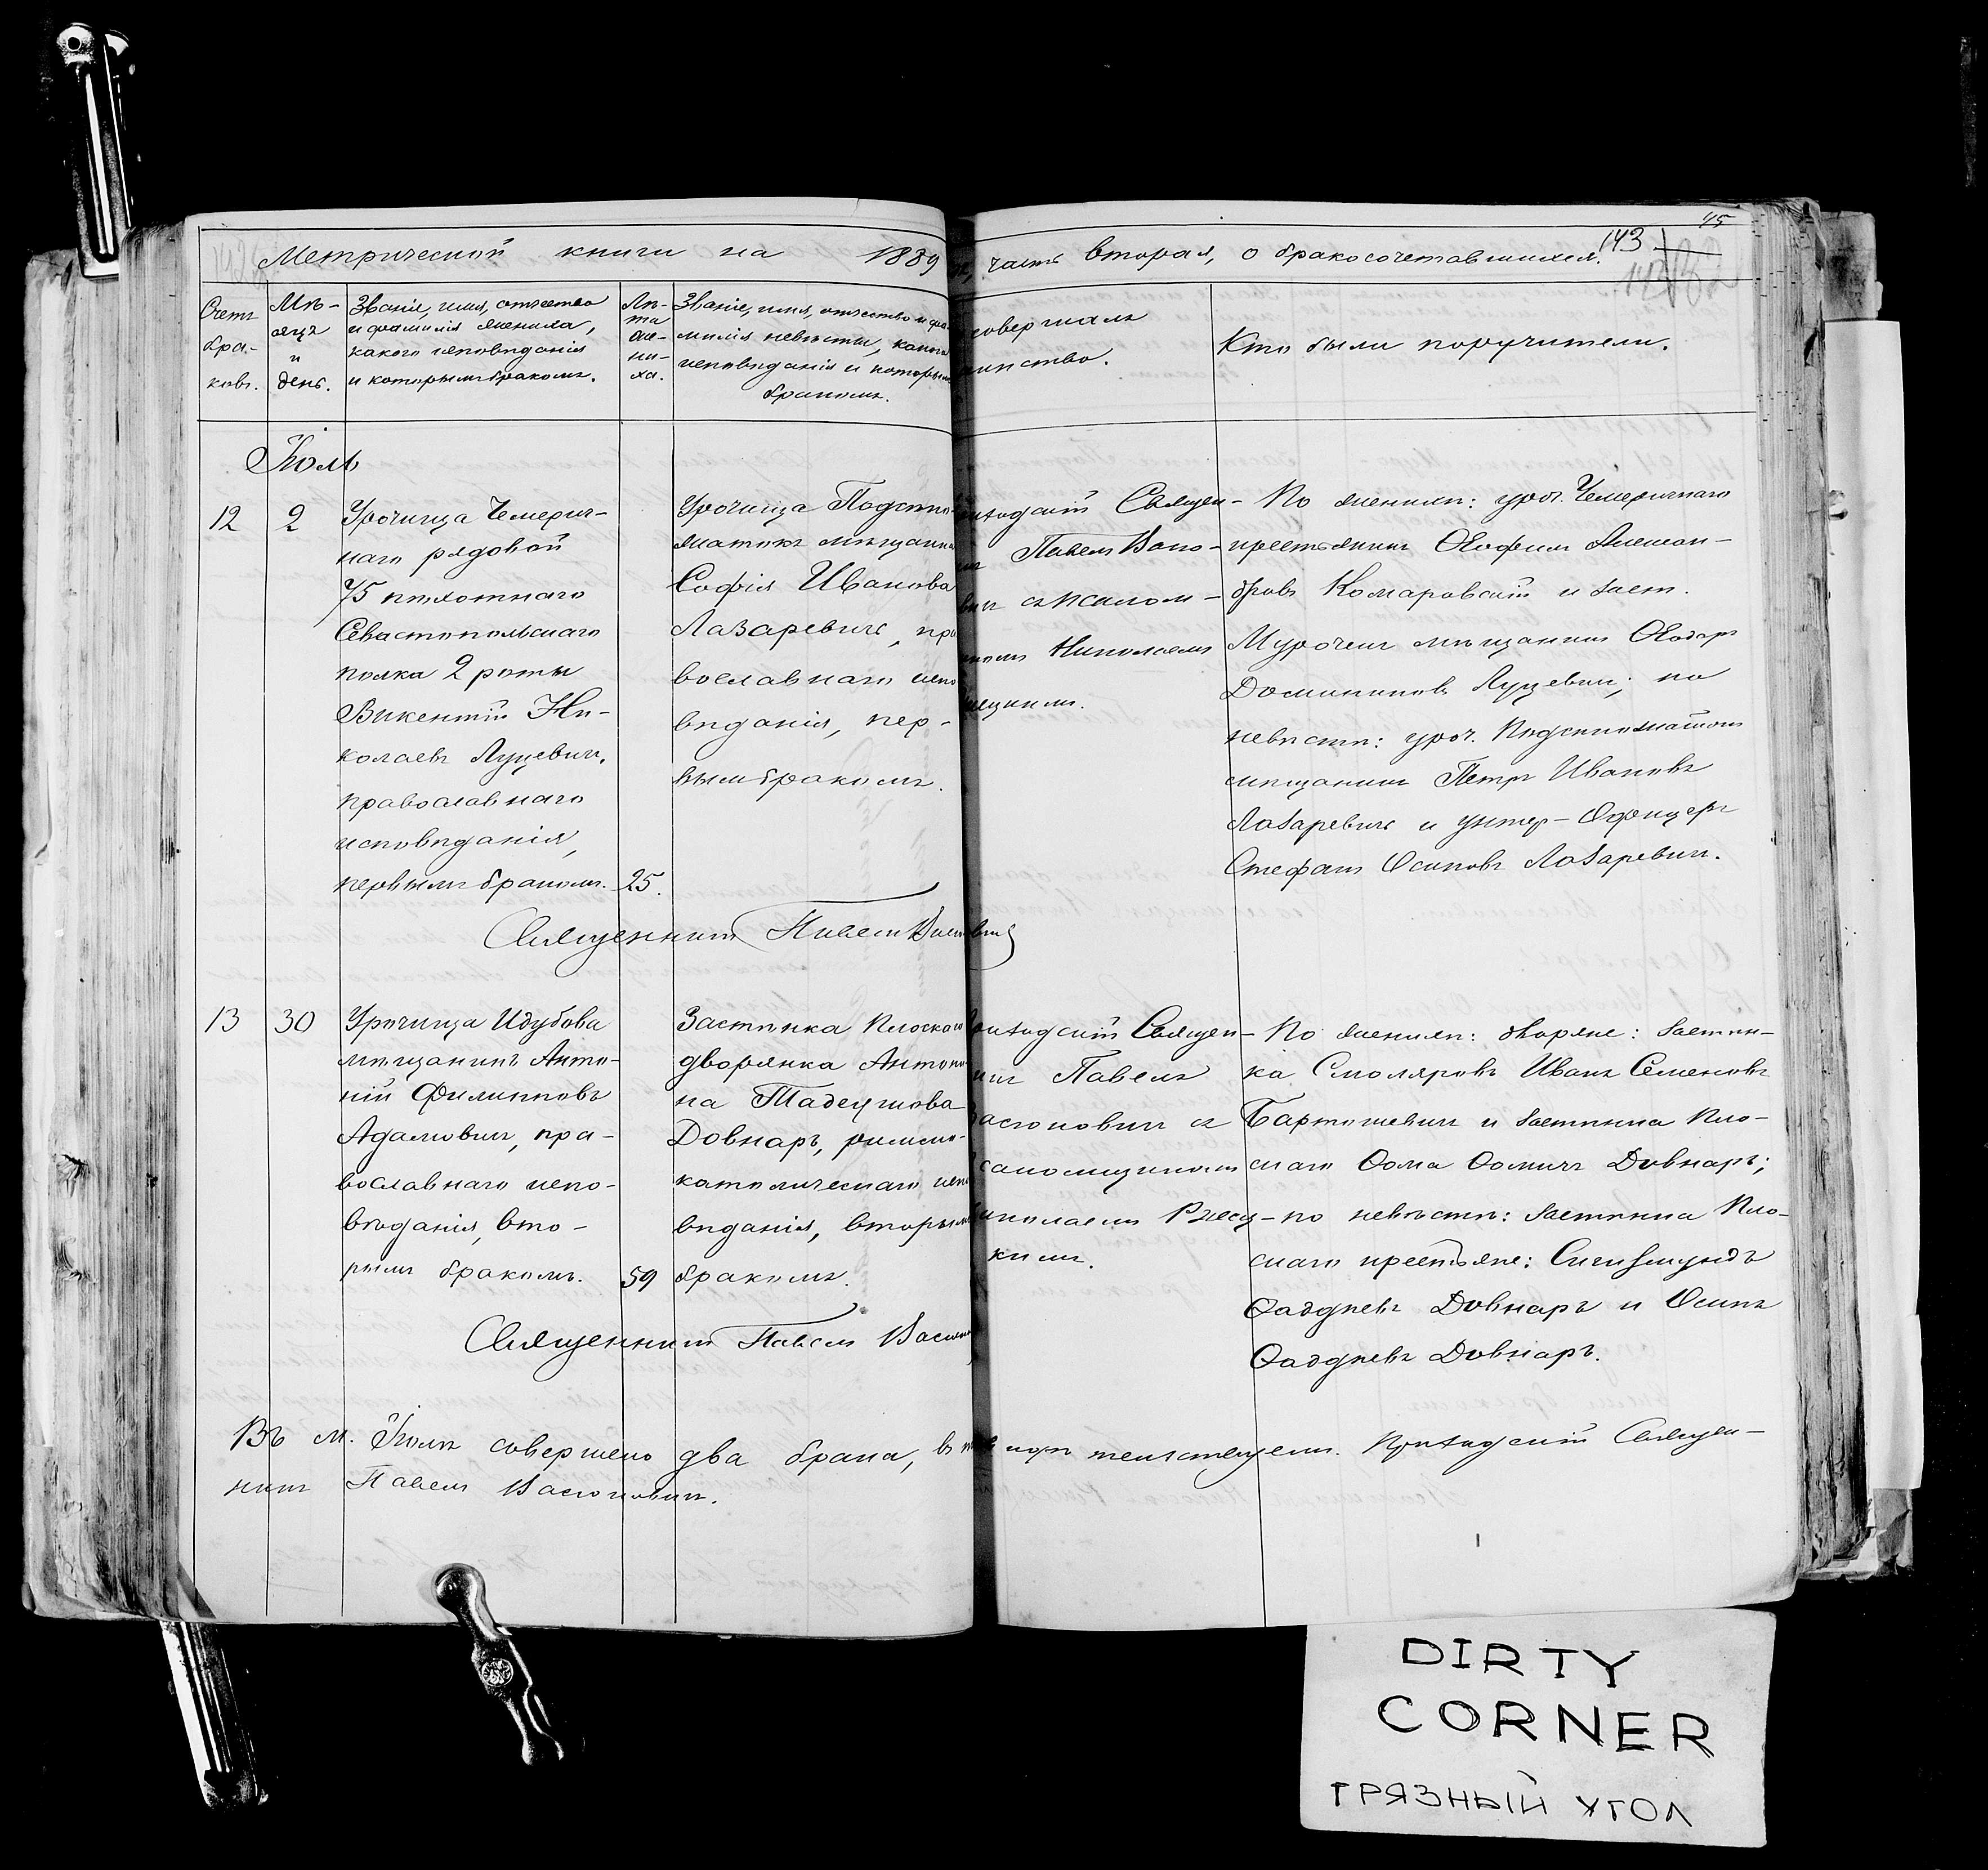 45
143
Метрической книги на 1889 часть вторая, о бракосочетавшихся.
Счетъ
бра-
ковъ.
Мѣ-
сяцъ
и
день.
Званіе, имя, отчество
и фамилія жениха,
какого исповѣданія
и которымъ бракомъ.
Лѣ-
та
же-
ни-
ха.
Званіе, имя, отчество и фа-
милія невѣсты, какого
исповѣданія и которымъ
бракомъ.
совершалъ
инство.
Кто были поручители.
Іюль
12
2
Урочища Чемерич-
наго рядовой
75 пѣхотнаго
Севастопольскаго
полка 2 роты
Викентій Ни-
колаевъ Луцевичъ,
православнаго
исповѣданія,
первымъ бракомъ.
25.
Урочища
мѣщанка
Софія Иванова
Лазаревичъ, пра
вославнаго испо
вѣданія, пер-
вымъ бракомъ.
иходскій Священ-
Павелъ
съ псалом-
Николаемъ
ецкимъ.
По женихѣ: уроч. Чемеричнаго
крестьянинъ Ѳеофилъ Алексан-
дровъ Комаровскій и заст.
мѣщанинъ Ѳеодоръ
Доминиковъ Луцевичъ; по
невѣстѣ: уроч.
мѣщанинъ Петръ Ивановъ
Лазаревичъ и унтер-Офицеръ
Стефанъ Осиповъ Лазаревичъ.
Священникъ Павелъ
13
30
Урочища Идубова
мѣщанинъ Анто-
ній Филипповъ
Адамовичъ, пра-
вославнаго испо-
вѣданія, вто-
рымъ бракомъ.
59
Застѣнка Плоскаго
дворянка Антони
на Тадеушова
Довнаръ, римско-
католическаго испо
вѣданія, вторымъ
бракомъ.
иходскій Священ-
Павелъ
асюковичъ съ
саломщикомъ
иколаемъ Рѣец-
кимъ.
По женихѣ: дворяне: застѣн-
ка Смоляровъ Иванъ Семеновъ
Бартошевичъ и застѣнка Пло-
скаго Ѳома Ѳомичъ Довнаръ;
по невѣстѣ: застѣнка Пло-
скаго крестьяне: Сигизмундъ
Ѳаддѣевъ Довнаръ и Осипъ
Ѳаддѣевъ Довнаръ.
Священникъ Павелъ
Въ м. Іюлѣ совершено два брака, в Приходскій Священ-
никъ Павелъ Васюковичъ.
DIRTY
CORNER
ГРЯЗНЫЙ УГОЛ